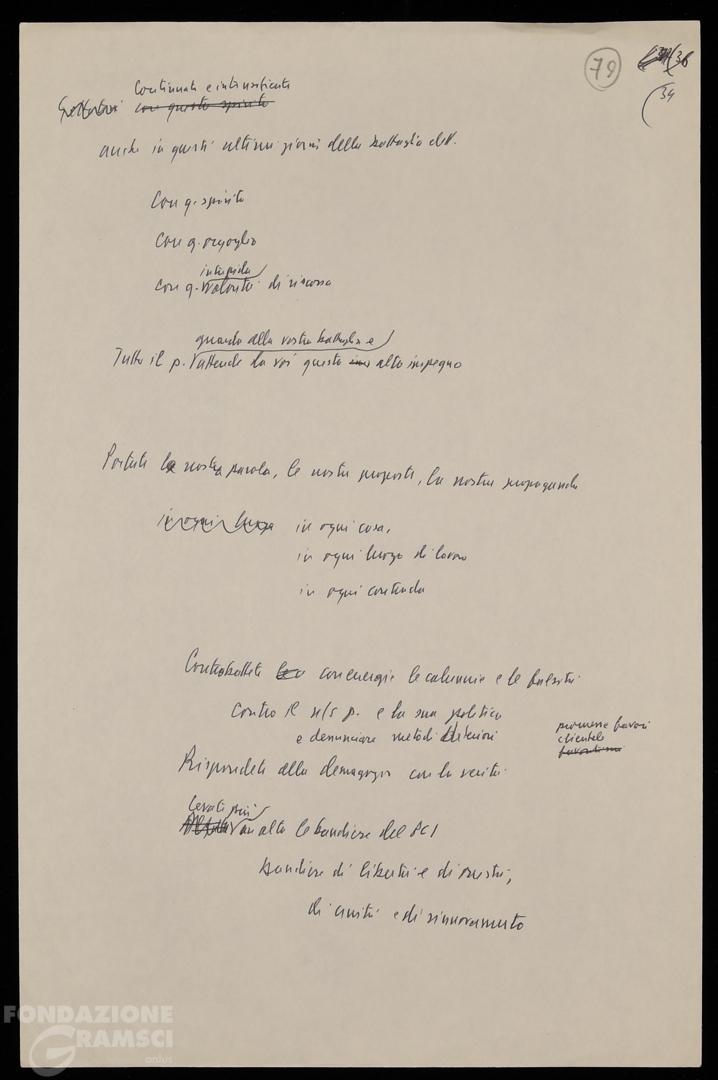 79
36
34
Continuate e intensificate
con questo spirito
anche in questi ultimi giorni della battaglia elett.
Con q. spirito
Con q. orgoglio
intrepida
con q. volontà di riscossa
guarda alla vostra battaglia e
Tutto il p. attende da voi questo alto impegno
Portate la nostra parola, le nostre proposte, la nostra propaganda
in ogni luogo in ogni casa,
in ogni luogo di lavoro
in ogni contrada
Controbattete con energia le calunnie e le falsità
contro il n/s p. e la sua politica
e denunciare metodi deteriori
promesse favori
clientele
favoritismi
Rispondete alla demagogia con la verità
Levate più
in alto le bandiere del PCI
bandiere di libertà e di giustizia,
di unità e di rinnovamento
FONDAZIONE
GRAMSCI
onlus